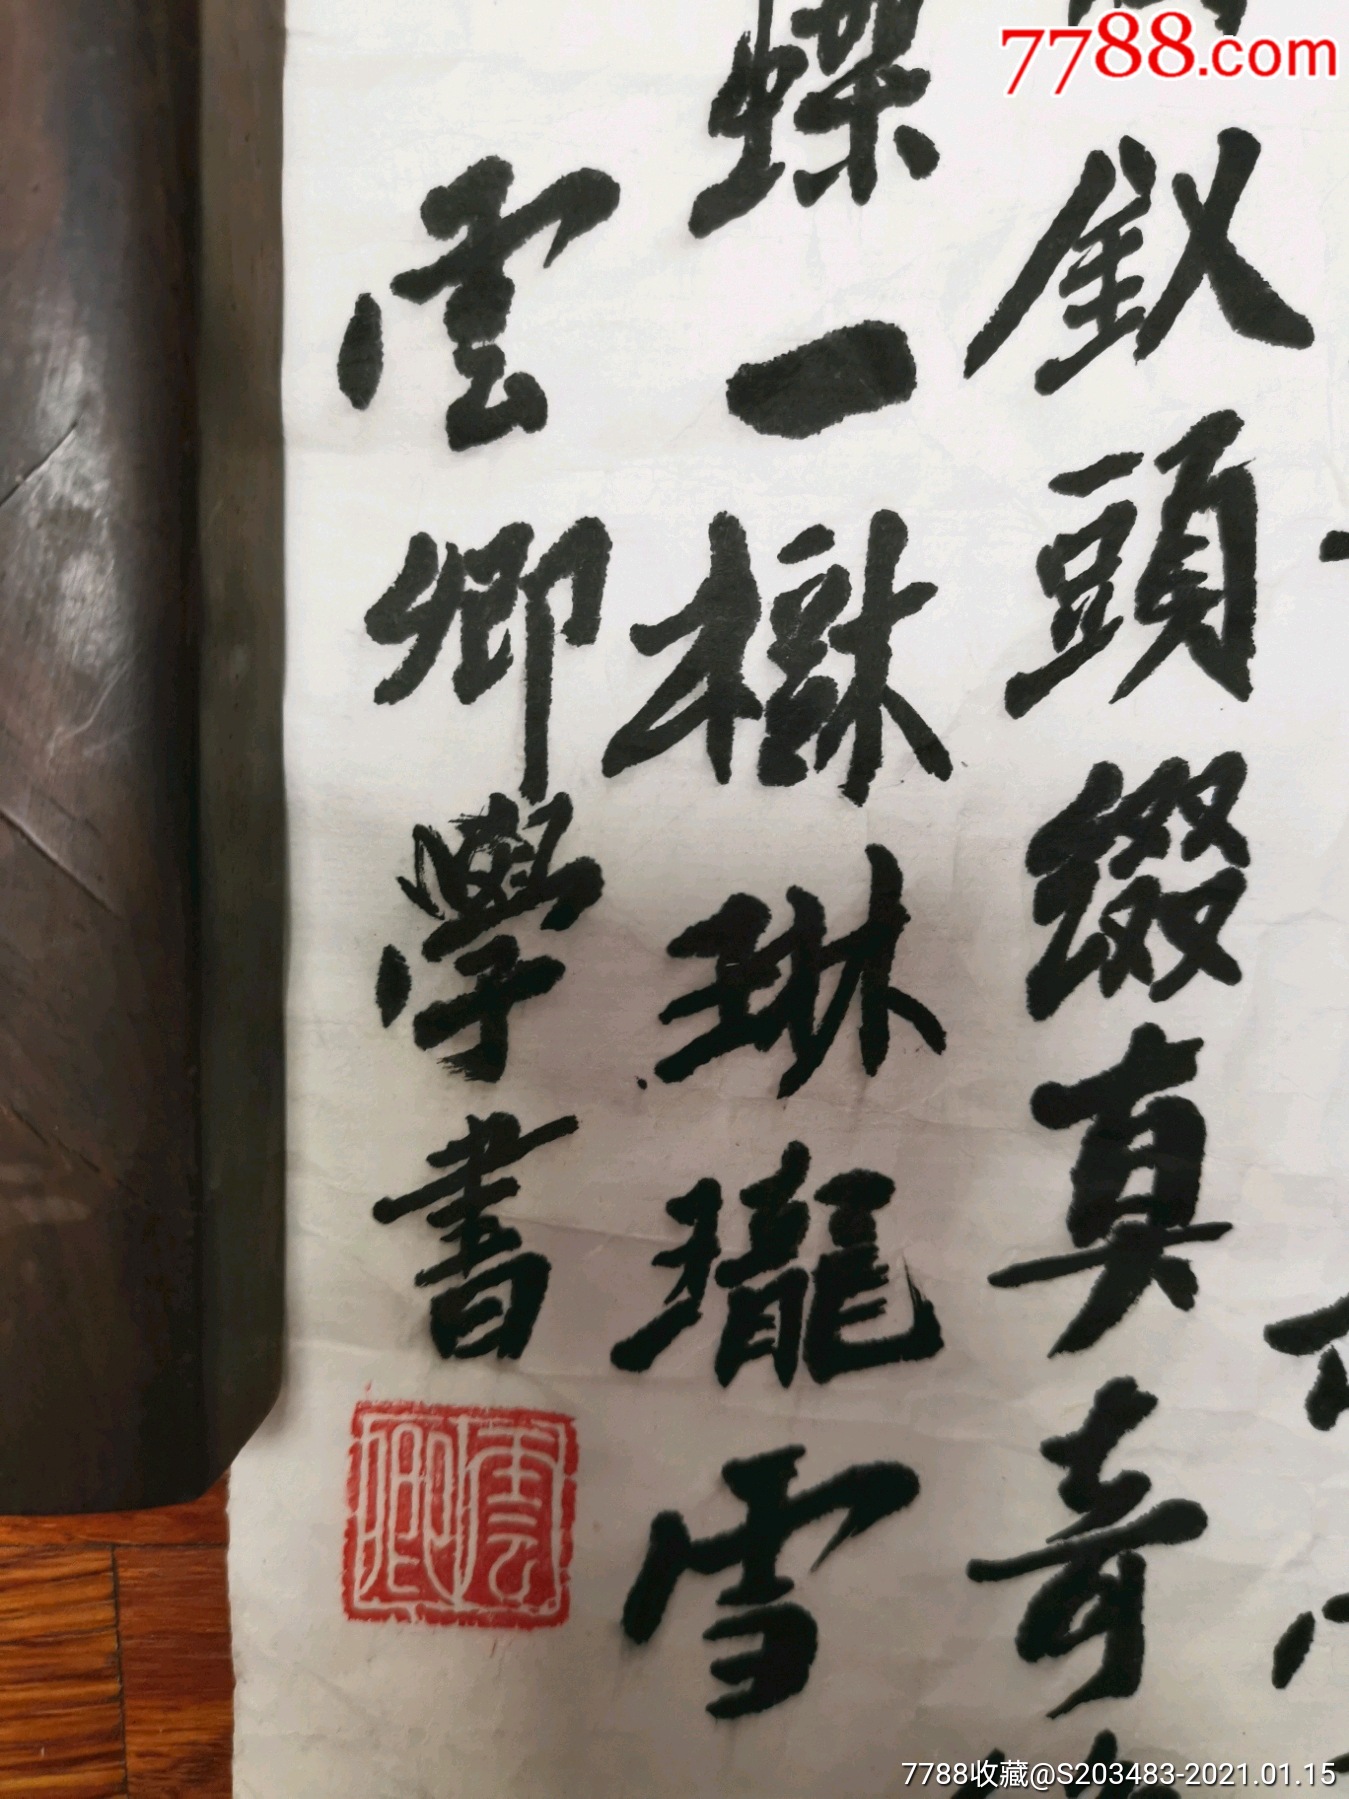 7788.com
釵頭綴真奇
蝶一樹琳瓏雪
雲卿學書
雲卿
7788收藏@S203483-2021.01.15